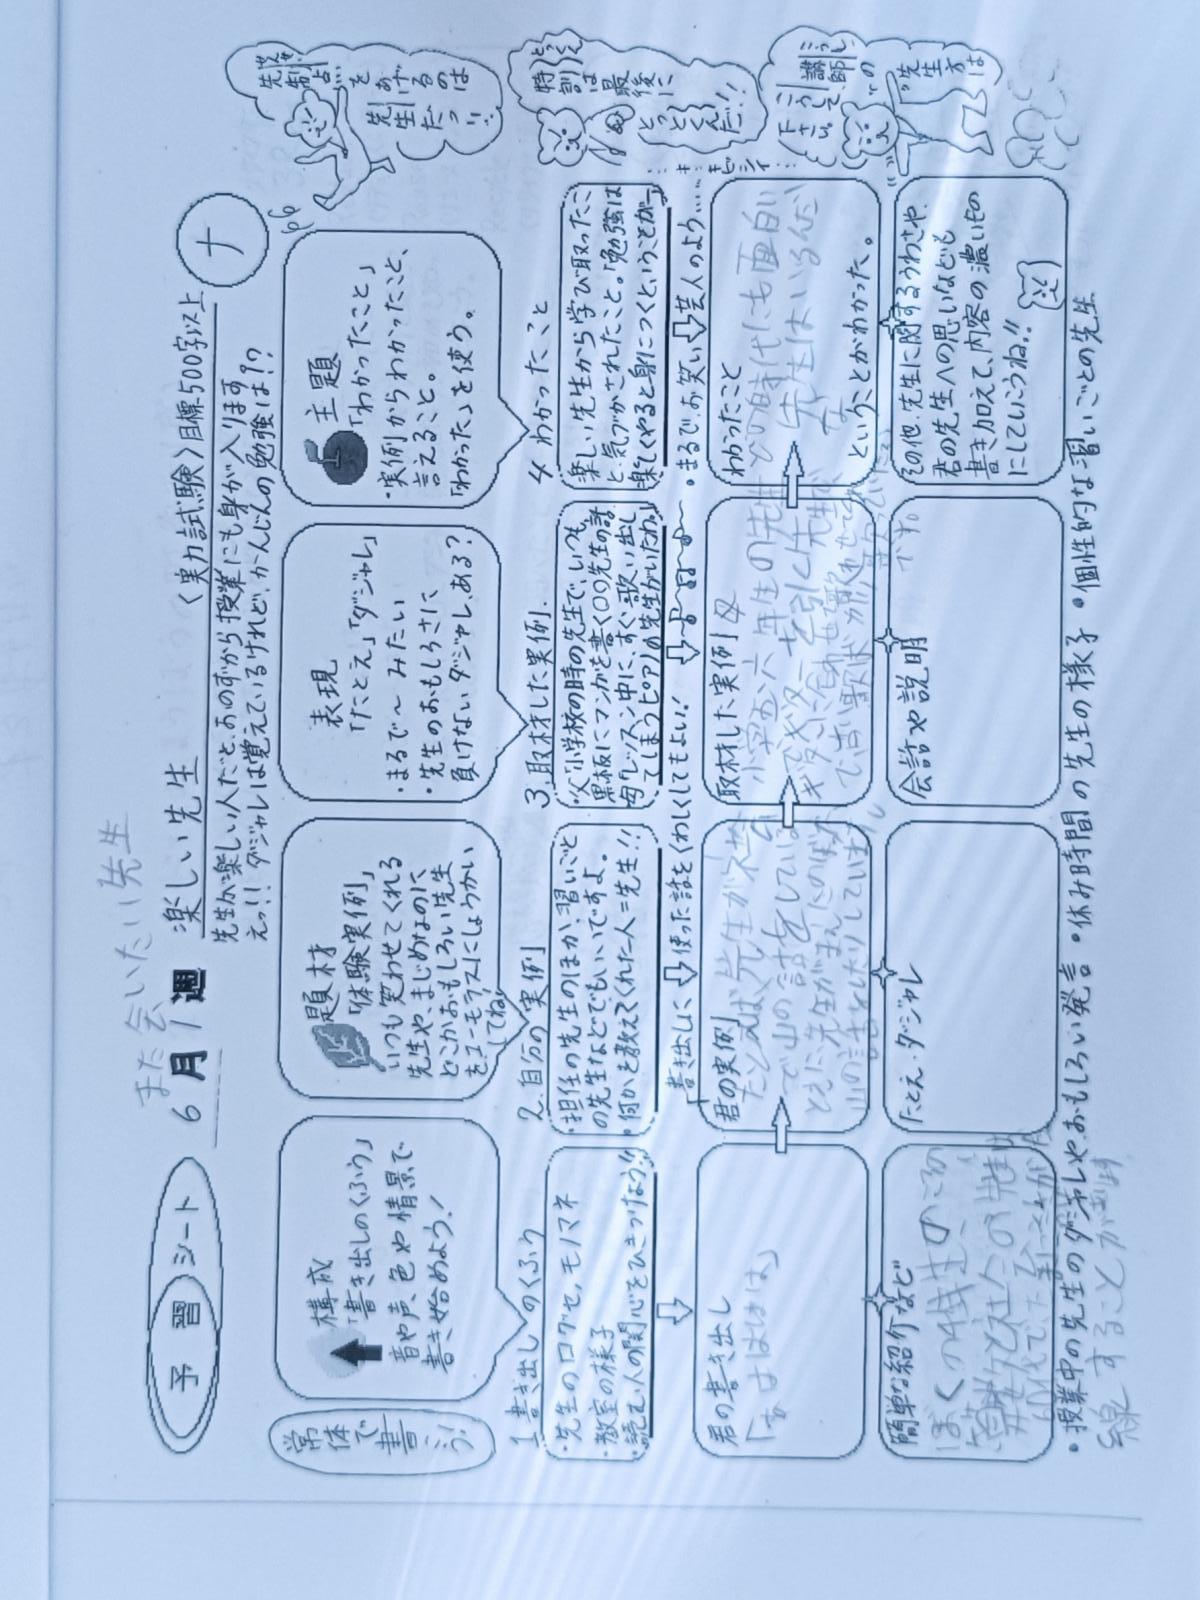 また会いたい先生
予習シート
6月1週
楽しい先生
〈実力試験〉目標500字以上
ナ
先生が楽しい人だと、おのずから授業にも身が入ります
えっ!! ダジャレは覚えているけれど、かんじんの勉強は??
常体で書こう!
構成
「書き出しのくふう」
音や声、色や情景で
書き始めよう!
題材
「体験実例」
いつも笑わせてくれる
先生や、まじめなのに
どこかおもしろい先生
をユーモラスにしょうかい
してね。
表現
「たとえ」「ダジャレ」
・まるで〜みたい
・先生のおもしろさに
負けないダジャレ、ある?
主題
「わかったこと」
・実例からわかったこと、
言えること。
「わかった」を使う。
1 書き出しのくふう
・先生の口グセ、モノマネ
・教室の様子
・読む人の関心をひきつけよう!!
2.自分の実例
・担任の先生のほか、習いごと
の先生などでもいいですよ。
・何かを教えてくれた人=先生!!
3.取材した実例
・父「小学校の時の先生で、いつも
黒板にマンガを書く〇〇先生の話
母「レッスン中に、すぐ歌い出し
てしまうピアノの先生がいたわ。」
4 わかったこと
楽しい先生から学び取ったこ
と、気づかされたこと。「勉強は
楽しくやると身につくということが〜」
「書き出しに
使った話をくわしくしてもよい!
・まるで、お笑い芸人のよう……
君の書き出し
「わはははは」
君の実例
たとえば先生が
で山の話をしている
ときに先生が
山の
取材した実例 母
小学五、六年生の先生
ギターを引く先生で
ギターに合わせて歌わせて
わかったこと
どの時代にも面白い
先生はいるんだ
な
ということがわかった。
簡単な紹介など
ぼくの
算数と
60代で
たとえ・ダジャレ
会話や説明
です
その他、先生に関するうわさや、
君の先生への思いなども
書き加えて、内容の濃いもの
にしていこうね!!
・授業中の先生のダジャレやおもしろい発言 ・休み時間の先生の様子 ・個性的な習いごとの先生
線することがあり
先制点をあげるのは
先生だっ!!
特訓は最後に
とっとくんだ!!
講師の先生方は
こうして下さい。